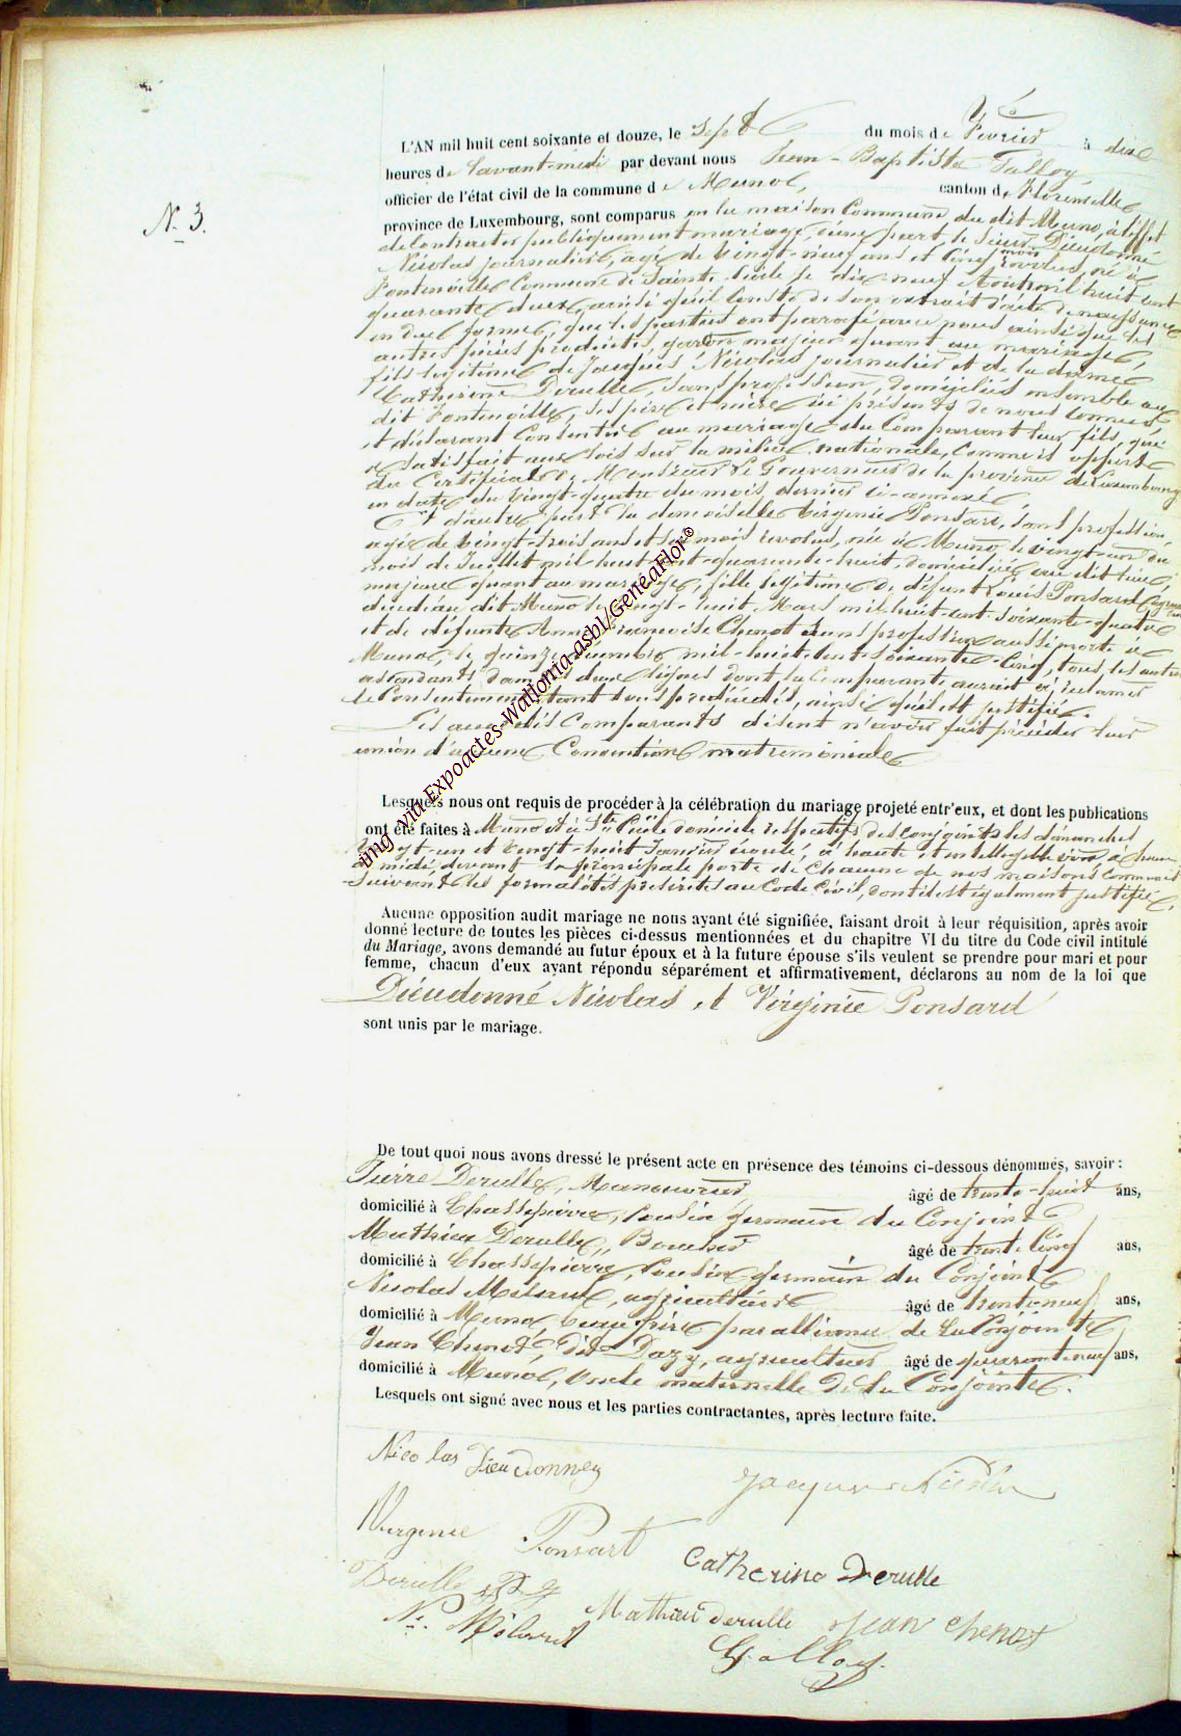 N. 3.
L'AN mil huit cent soixante et douze, le Sept du mois de Fevrier à dix
heures de l'avant-midi par devant nous Jean-Baptiste
officier de l'état civil de la commune de Muno, canton de Florenville
province de Luxembourg, sont comparus en la maison Commune du dit Muno, à l'effet
de Contracter publiquement mariage, d'une part, le Sieur Dieudonné
Nicolas journalier, agé de Vingt-neuf ans et Cinq mois révolus, né à
Fontenoille Commune de Sainte-Cécile le dix-neuf Août mil huit cent
quarante deux, ainsi qu'il Conste de son extrait d'acte de naissance
en due forme, que les parties ont parafé avec nous ainsi que les
autres pièces produites, garçon majeur quant au mariage,
fils légitime de Jacques Nicolas journalier et de la dame
Catherine Derulle, sans profession, domiciliés ensemble au
dit Fontenoille, ses père et mère ici présents de nous connus
et déclarant Consentir au mariage du Comparant leur fils, qui
a satisfait aux lois sur la milice nationale, comme il appert
du Certificat de Monsieur le Gouverneur de la province de Luxembourg
en date du Vingt-quatre du mois dernier ci-annexé,
Et d'autre part la demoiselle Virginie Ponsard, sans profession,
agée de Vingt-trois ans et six mois révolus, née à Muno le vingt-un du
mois de Juillet mil huit cent-quarante-huit, domiciliée au dit lieu,
majeure quant au mariage, fille légitime de défunt Louis Ponsard
décédé au dit Muno le vingt-huit Mars mil huit-cent-soixante-quatre
et de défunte Anne Françoise Chenot sans profession aussi morte à
Muno, le quinze mil-huit-cent-soixante-cinq, tous les autres
ascendants dans les deux lignes dont la Comparante aurait à réclamer
le Consentement étant tous prédécédés, ainsi qu'il est justifié.
Les Comparants disent n'avoir fait précéder leur
union d'aucune Convention matrimoniale
Lesquels nous ont requis de procéder à la célébration du mariage projeté entr'eux, et dont les publications
ont été faites à Muno et à Ste Cécile domicile respectifs des conjoints les dimanches
Vingt-un et Vingt-huit Janvier écoulé, à haute et intelligible voix, à heure
de midi, devant la principale porte de Chacune de nos maisons communes
suivant les formalités prescrites au Code Civil, dont il est également justifié.
Aucune opposition audit mariage ne nous ayant été signifiée, faisant droit à leur réquisition, après avoir
donné lecture de toutes les pièces ci-dessus mentionnées et du chapitre VI du titre du Code civil intitulé
du Mariage, avons demandé au futur époux et à la future épouse s'ils veulent se prendre pour mari et pour
femme, chacun d'eux ayant répondu séparément et affirmativement, déclarons au nom de la loi que
Dieudonné Nicolas et Virginie Ponsard
sont unis par le mariage.
De tout quoi nous avons dressé le présent acte en présence des témoins ci-dessous dénommés, savoir :
Pierre Derulle, Manouvrier, âgé de trente-huit ans,
domicilié à Chassepierre, Cousin germain du Conjoint
Mathieu Derulle, âgé de trente Cinq ans,
domicilié à Chassepierre, Cousin germain du Conjoint
Nicolas agriculteur âgé de trente neuf ans,
domicilié à Muno, beau frère par alliance de la Conjointe
Jean Chenot, dit Dazy, agriculteur âgé de quarante neuf ans,
domicilié à Muno, Oncle maternelle de la Conjointe.
Lesquels ont signé avec nous et les parties contractantes, après lecture faite.
Nico las Dieudonney
Jacques Nicolas
Virgenie Ponsart
Catherine Derulle
Derulle
Mathieu derulle Jean Chenot
N.
img via Expoactes-Wallonia-asbl/GeneaFlor©